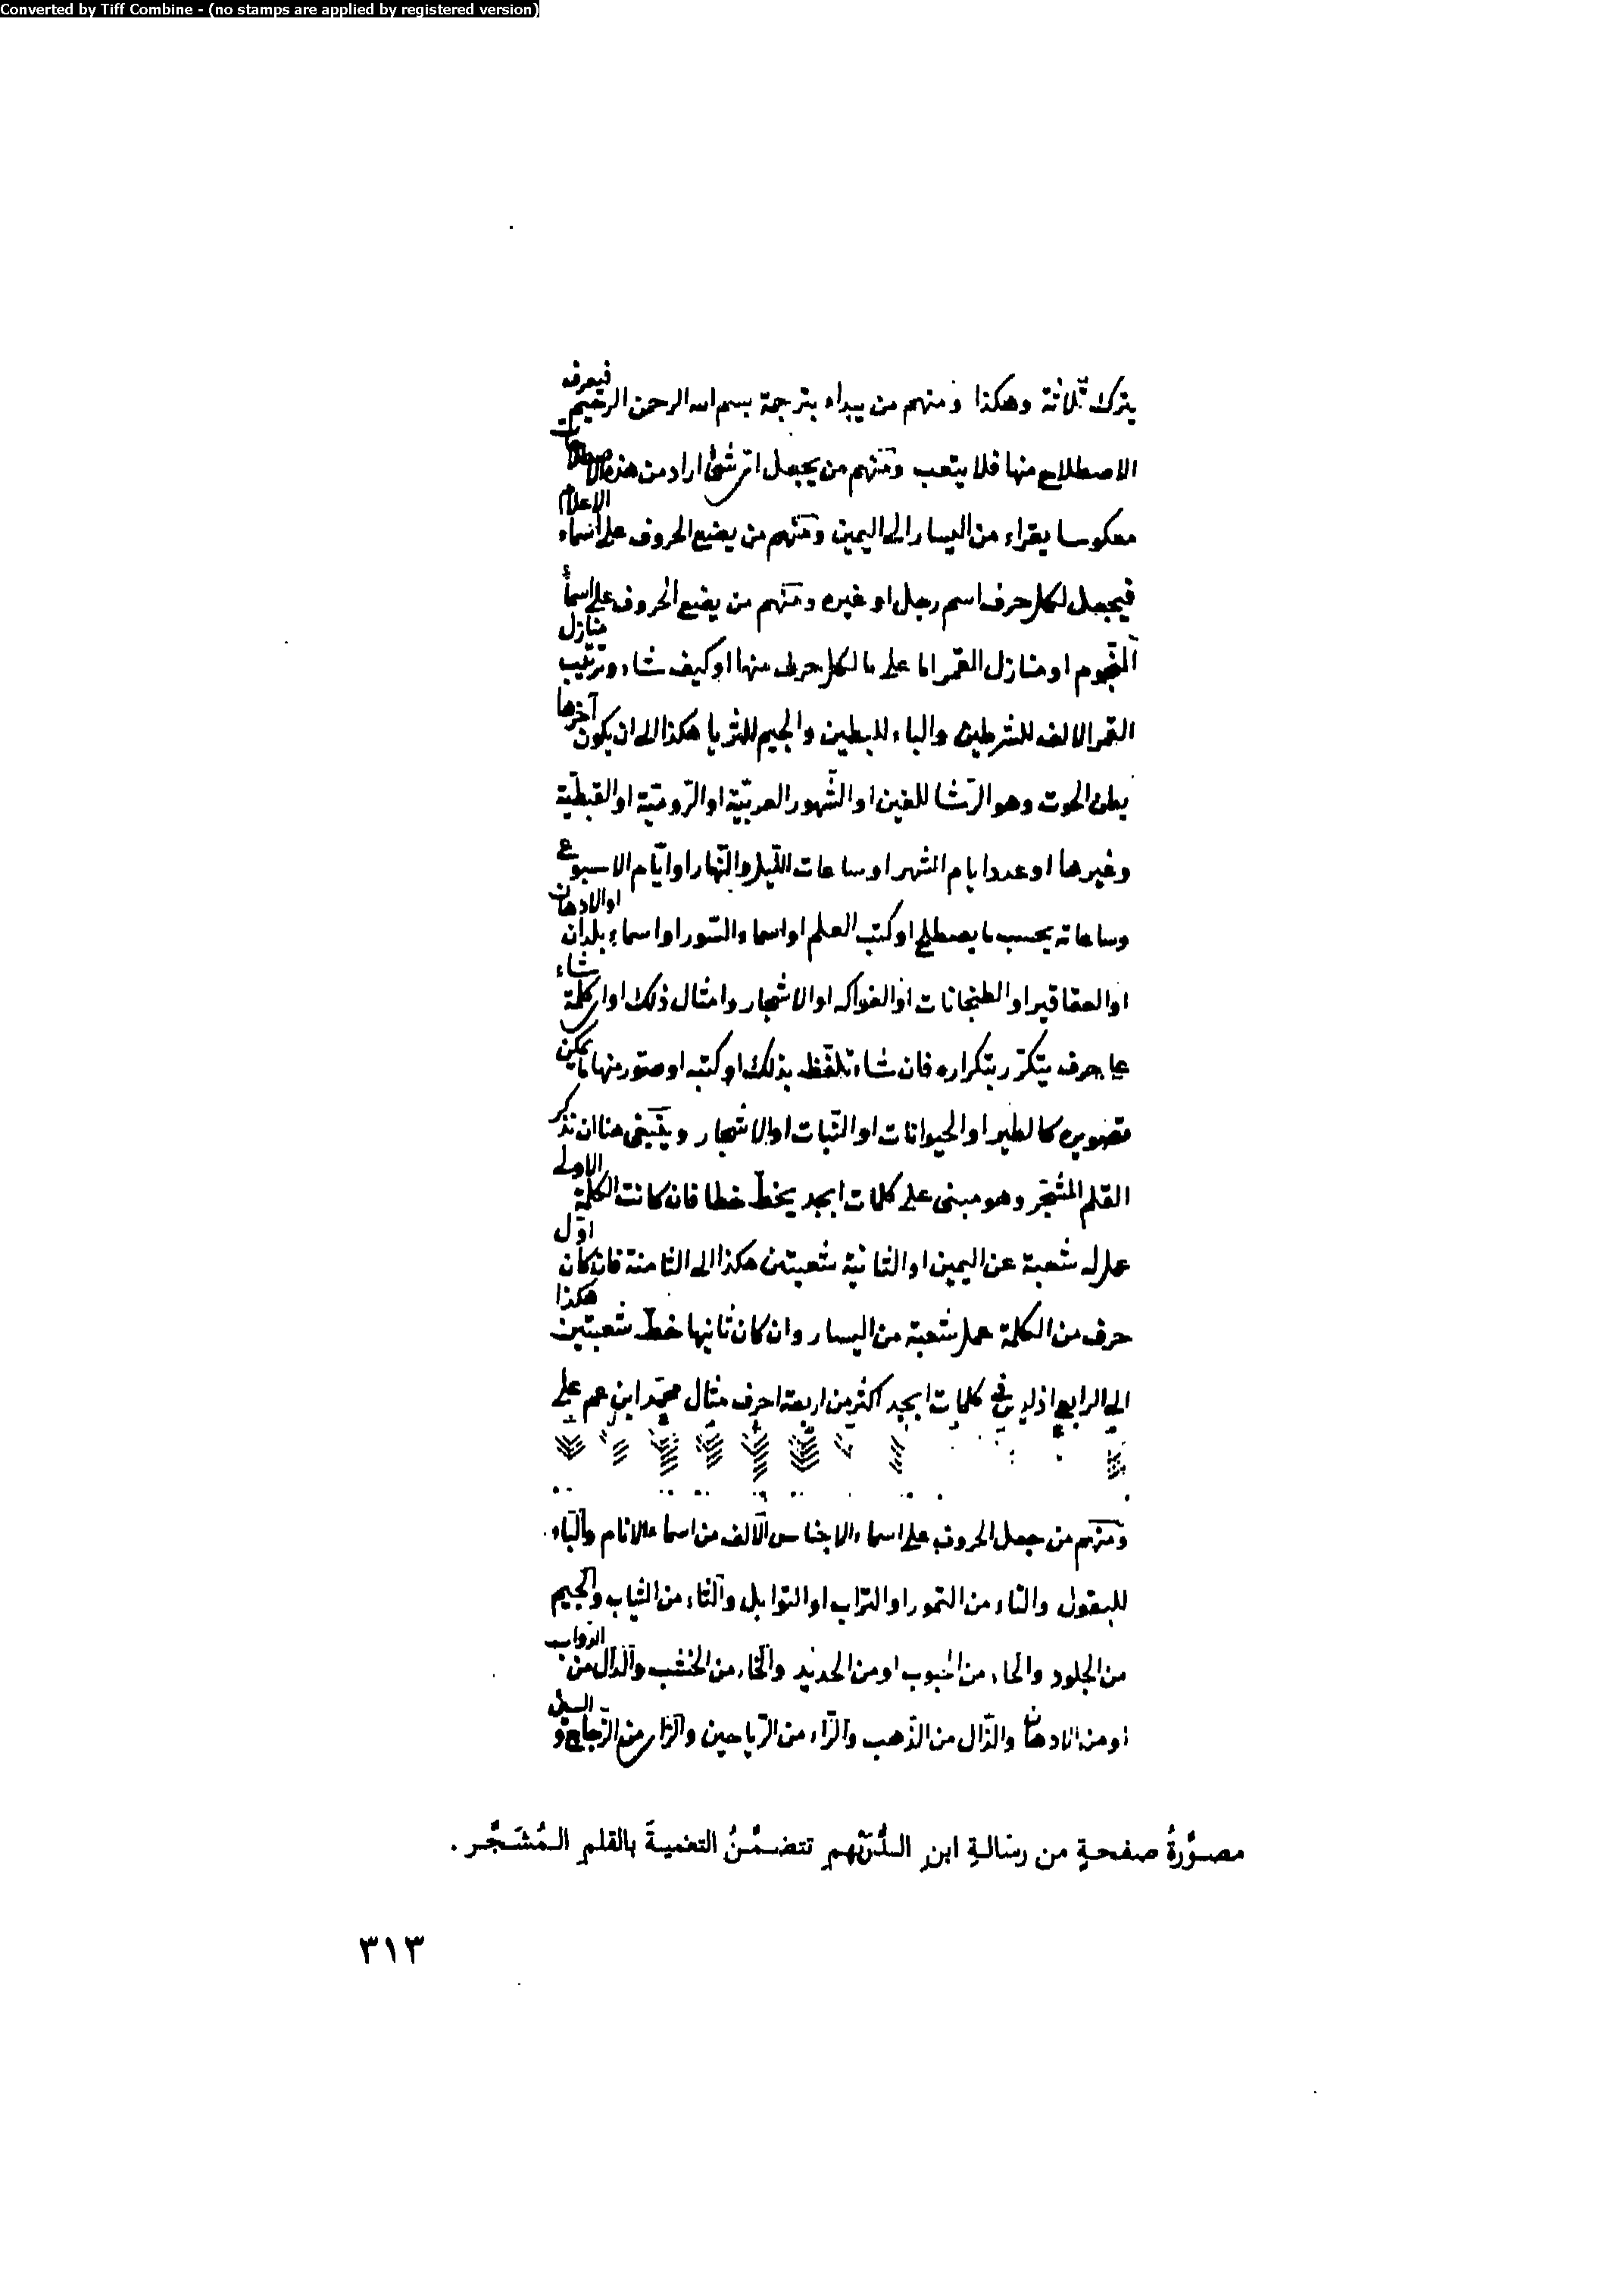 Converted by Tiff Combine - (no stamps are applied by registered version)
يترك ثلاثة وهكذا ومنهم من يبداء بترجمة بسم الله الرحمن الرحيم فيعرف
الاصطلاح منها فلا يتعب ومنهم من يجعل اى شئ اراد من هذه
معكوسا يقراء من اليسار الى اليمين ومنهم من يضع الحروف على اسماء الاعلام
فيجعل لكل حرف اسم رجل او غيره ومنهم من يضع الحروف على اسماء
النجوم او منازل القمر اما على ما لكل حرف منها او كيف شاء وترتيب منازل
القمر الالف للشرطين والباء للبطين والجيم للثريا هكذا الى ان يكون آخرها
بطن الحوت وهو الرّشا للغين او الشّهور العربيّة او الرّوميّة او القبطيّة
وغيرها او عدد ايام الشهر او ساعات اللّيل والنّهار او ايّام الاسبوع
وساعاته بحسب ما يصطلح او كتب العلم او اسماء السّور او اسماء بلدان او الادهان
او العقاقير او الطنجانات او الفواكه او الاشجار وامثال ذلك او اى كلمة شاء
على حرف يتكرّر بتكراره فان شاء تلفّظ بذلك او كتبه او صوّر منها ما يمكن
تصويره كالطير او الحيوانات او النّبات او الاشجار وينبغى هنا ان نذكر
القلم المشجّر وهو مبنى على كلمات ابجد يخطّ خطا فان كانت الكلمة الاولى
عمل له شعبة عن اليمين او الثانية شعبتين هكذا الى الثامنة فان كان اوّل
حرف من الكلمة عمل شعبة من اليسار وان كان ثانيها خطّ شعبتين هكذا
الى الرابع اذ ليس فى كلمات ابجد اكثر من اربعة احرف مثال محمّد ابن عم على
ومنهم من جعل الحروف على اسماء الاجناس الالف من اسماء الانام والباء
للبقول والتاء من التمور او التراب او التوابل والثاء من الثياب والجيم
من الجلود والحاء من الحبوب او من الحديد والخاء من الخشب والدّال من الدّواب
او من الادهان والذّال من الذّهب والرّاء من الرّياحين والزاى من الزّجاج و
مصوَّرةُ صفحةٍ من رسالةِ ابنِ الدُّرَيْهِم تتضمَّنُ التعميةَ بالقلم المُشَجَّر .
٣١٣